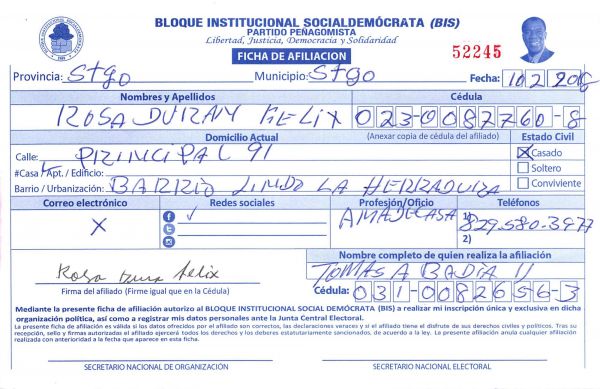 BLOQUE INSTITUCIONAL SOCIALDEMÓCRATA (BIS)
PARTIDO PEÑAGOMISTA
Libertad, Justicia, Democracia y Solidaridad
FICHA DE AFILIACION
52245
Provincia: Stgo Municipio: Stgo Fecha:
Nombres y Apellidos Cédula
ROSA DURAN FELIX 023-0087760-8
Domicilio Actual (Anexar copia de cédula del afiliado) Estado Civil
Calle: PRINCIPAL 91 X Casado
#Casa / Apt. / Edificio: Soltero
Barrio / Urbanización: BARRIO LINDO LA HERRADURA Conviviente
Correo electrónico Redes sociales Profesión/Oficio Teléfonos
X AMADECASA 1) 829.580.3977
2)
Nombre completo de quien realiza la afiliación
Rosa Felix TOMAS A BADIA
Firma del afiliado (Firme igual que en la Cédula) Cédula: 031-0082656-3
Mediante la presente ficha de afiliación autorizo al BLOQUE INSTITUCIONAL SOCIAL DEMÓCRATA (BIS) a realizar mi inscripción única y exclusiva en dicha
organización política, así como a registrar mis datos personales ante la Junta Central Electoral.
La presente ficha de afiliación es válida si los datos ofrecidos por el afiliado son correctos, las declaraciones veraces y si el afiliado tiene el disfrute de sus derechos civiles y políticos. Tras su
recepción, sello y firmas autorizadas el afiliado ejercerá todos los derechos y los deberes estatutariamente sancionados, de acuerdo a la ley. La presente afiliación anula cualquier afiliación
realizada con anterioridad a la fecha que aparece en esta ficha.
SECRETARIO NACIONAL DE ORGANIZACIÓN SECRETARIO NACIONAL ELECTORAL